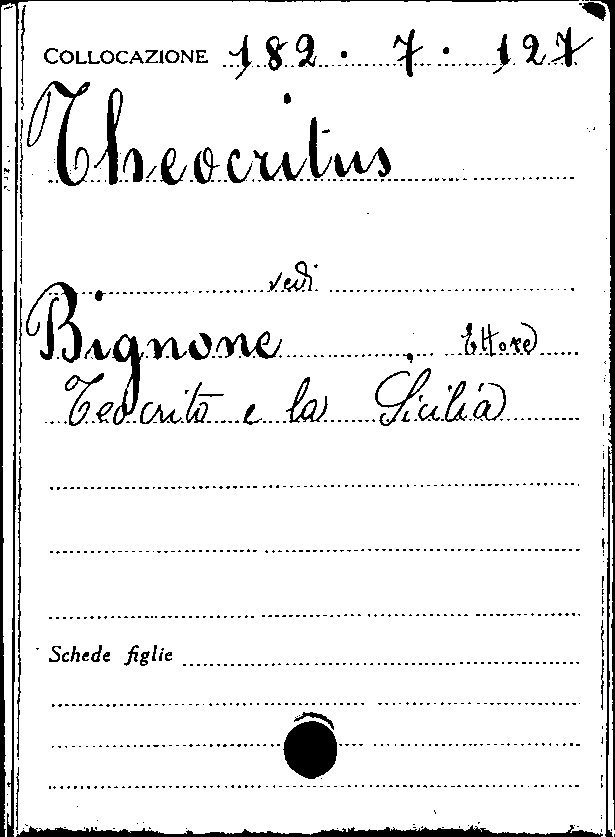 COLLOCAZIONE 182. 7. 127
Theocritus
vedi
Bignone, Ettore
Teocrito e la Sicilia
Schede figlie